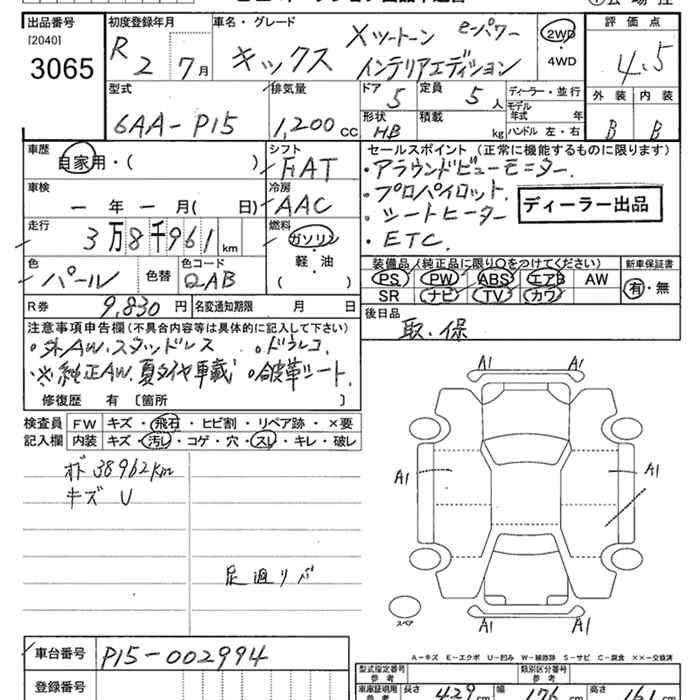 出品番号 初度登録年月 車名・グレード 評価点
[2040]
3065
R 2 7月 キックス Xツートーン e-パワー インテリアエディション
2WD
・
4WD
4.5
型式 排気量 ドア 定員 ディーラー・並行 外装 内装
6AA-P15 1,200cc 5 5人 モデル年式 年
形状 積載 B B
HB kg ハンドル 左・右
車歴 シフト セールスポイント (正常に機能するものに限ります)
自家用・( ) FAT ・アラウンドビューモニター.
車検 冷房 ・プロパイロット.
ー年ー月( 日) AAC ・シートヒーター
ディーラー出品
走行 燃料 ・ETC.
3万8千961km ガソリン
軽・油
( )
色 色替 色コード
パール QAB
装備品(純正品に限り○をつけてください) 新車保証書
PS PW ABS エアB AW 有・無
SR ナビ TV カワ
R券 9,830円 名変通知期限 月 日 後日品
取.保
注意事項申告欄(不具合内容等は具体的に記入して下さい)
・社外AW.スタッドレス ・ドラレコ.
・※純正AW.夏タイヤ車載 ・合皮革シート.
修復歴 有 [箇所 ]
検査員 FW キズ・飛石・ヒビ割・リペア跡・×要
記入欄 内装 キズ・汚レ・コゲ・穴・スレ・キレ・破レ
38962km
キズ U
足廻りサビ
A1 A1
A1 A1
A1 A1
スペア
A-キズ E-エクボ U-凹み W-補修跡 S-サビ C-腐食 ××-交換済
車台番号 P15-002994
登録番号
型式指定番号 参考 類別区分番号 参考
車庫証明用 参考 長さ 429cm 幅 176cm 高さ 161cm